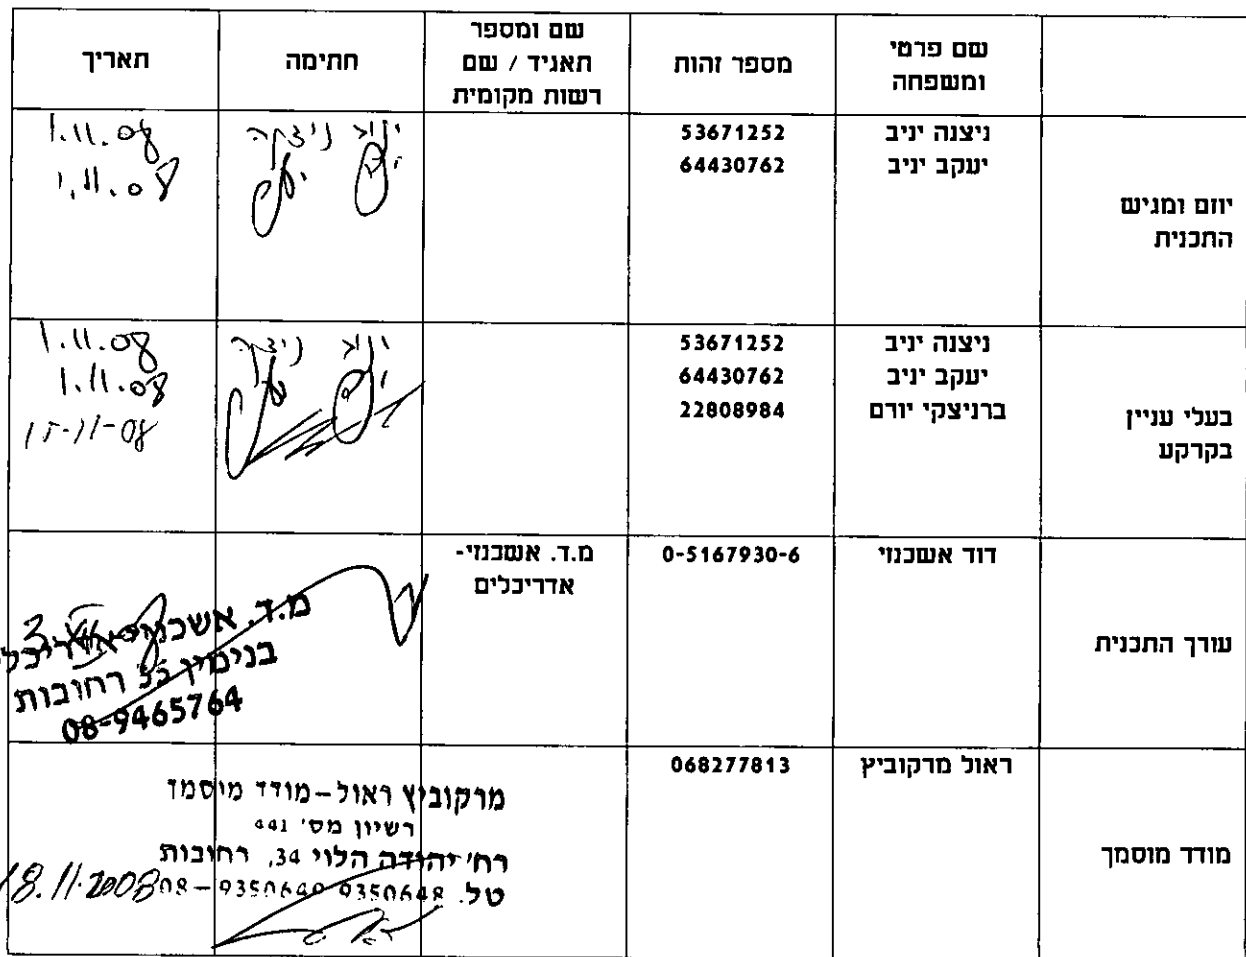 שם פרטי
ומשפחה
מספר זהות
שם ומספר
תאגיד / שם
רשות מקומית
חתימה
תאריך
יוזם ומגיש
התכנית
ניצנה יניב
יעקב יניב
53671252
64430762
יניב ניצנה
1.11.08
1.11.08
בעלי עניין
בקרקע
ניצנה יניב
יעקב יניב
ברניצקי יורם
53671252
64430762
22808984
יניב ניצנה
1.11.08
1.11.08
עורך התכנית
דוד אשכנזי
0-5167930-6
מ.ד. אשכנזי-
אדריכלים
מ.ד. אשכנזי
בנימין רחובות
08-9465764
מודד מוסמך
ראול מרקוביץ
068277813
מרקוביץ ראול – מודד מוסמך
רשיון מס' 441
רח' יהודה הלוי 34, רחובות
טל. 9350648 9350649 – 08
18.11.2008